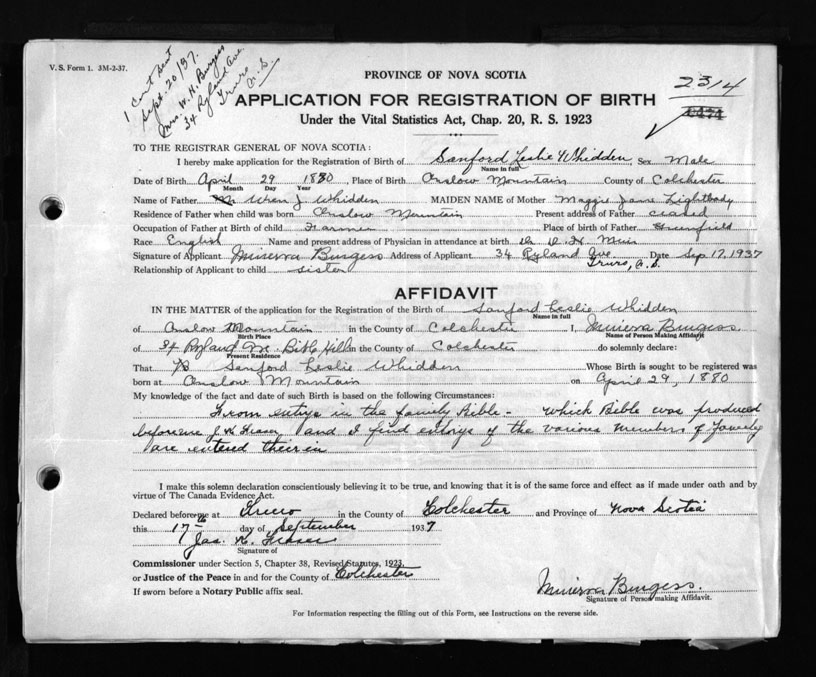 V. S. Form 1. 3M-2-37.
1 Cert Sent
Sept. 20/37.
Mrs. W. H. Burgess
34 Ryland Ave.
Truro
N. S.
PROVINCE OF NOVA SCOTIA
2314
APPLICATION FOR REGISTRATION OF BIRTH
Under the Vital Statistics Act, Chap. 20, R. S. 1923
TO THE REGISTRAR GENERAL OF NOVA SCOTIA:
I hereby make application for the Registration of Birth of Sanford Leslie Whidden, Sex Male
Name in full
Date of Birth April 29 1880, Place of Birth Onslow Mountain County of Colchester
Month Day Year
Name of Father J Whidden MAIDEN NAME of Mother Maggie Jane Lightbody
Residence of Father when child was born Onslow Mountain Present address of Father
Occupation of Father at Birth of child Farmer Place of birth of Father Greenfield
Race English Name and present address of Physician in attendance at birth Dr D. H. Muir
Signature of Applicant Minerva Burgess Address of Applicant 34 Ryland Ave Date Sep 17, 1937
Truro, N. S.
Relationship of Applicant to child sister
AFFIDAVIT
IN THE MATTER of the application for the Registration of the Birth of Sanford Leslie Whidden
Name in full
of Onslow Mountain in the County of Colchester I, Minerva Burgess
Birth Place Name of Person Making Affidavit
of 34 Ryland Ave Bible Hill in the County of Colchester do solemnly declare:
Present Residence
That Sanford Leslie Whidden Whose Birth is sought to be registered was
born at Onslow Mountain on April 29, 1880
My knowledge of the fact and date of such Birth is based on the following Circumstances:
From entrys in the family Bible - which Bible was produced
before me J. K. Fraser and I find entorys of the various members of Family
are entered their in
I make this solemn declaration conscientiously believing it to be true, and knowing that it is of the same force and effect as if made under oath and by
virtue of The Canada Evidence Act.
Declared before me at Truro in the County of Colchester and Province of Nova Scotia
this 17th day of September 1937
Jas. K. Fraser
Signature of
Commissioner under Section 5, Chapter 38, Revised Statutes, 1923,
or Justice of the Peace in and for the County of Colchester
If sworn before a Notary Public affix seal.
Minerva Burgess.
Signature of Person making Affidavit.
For Information respecting the filling out of this Form, see Instructions on the reverse side.